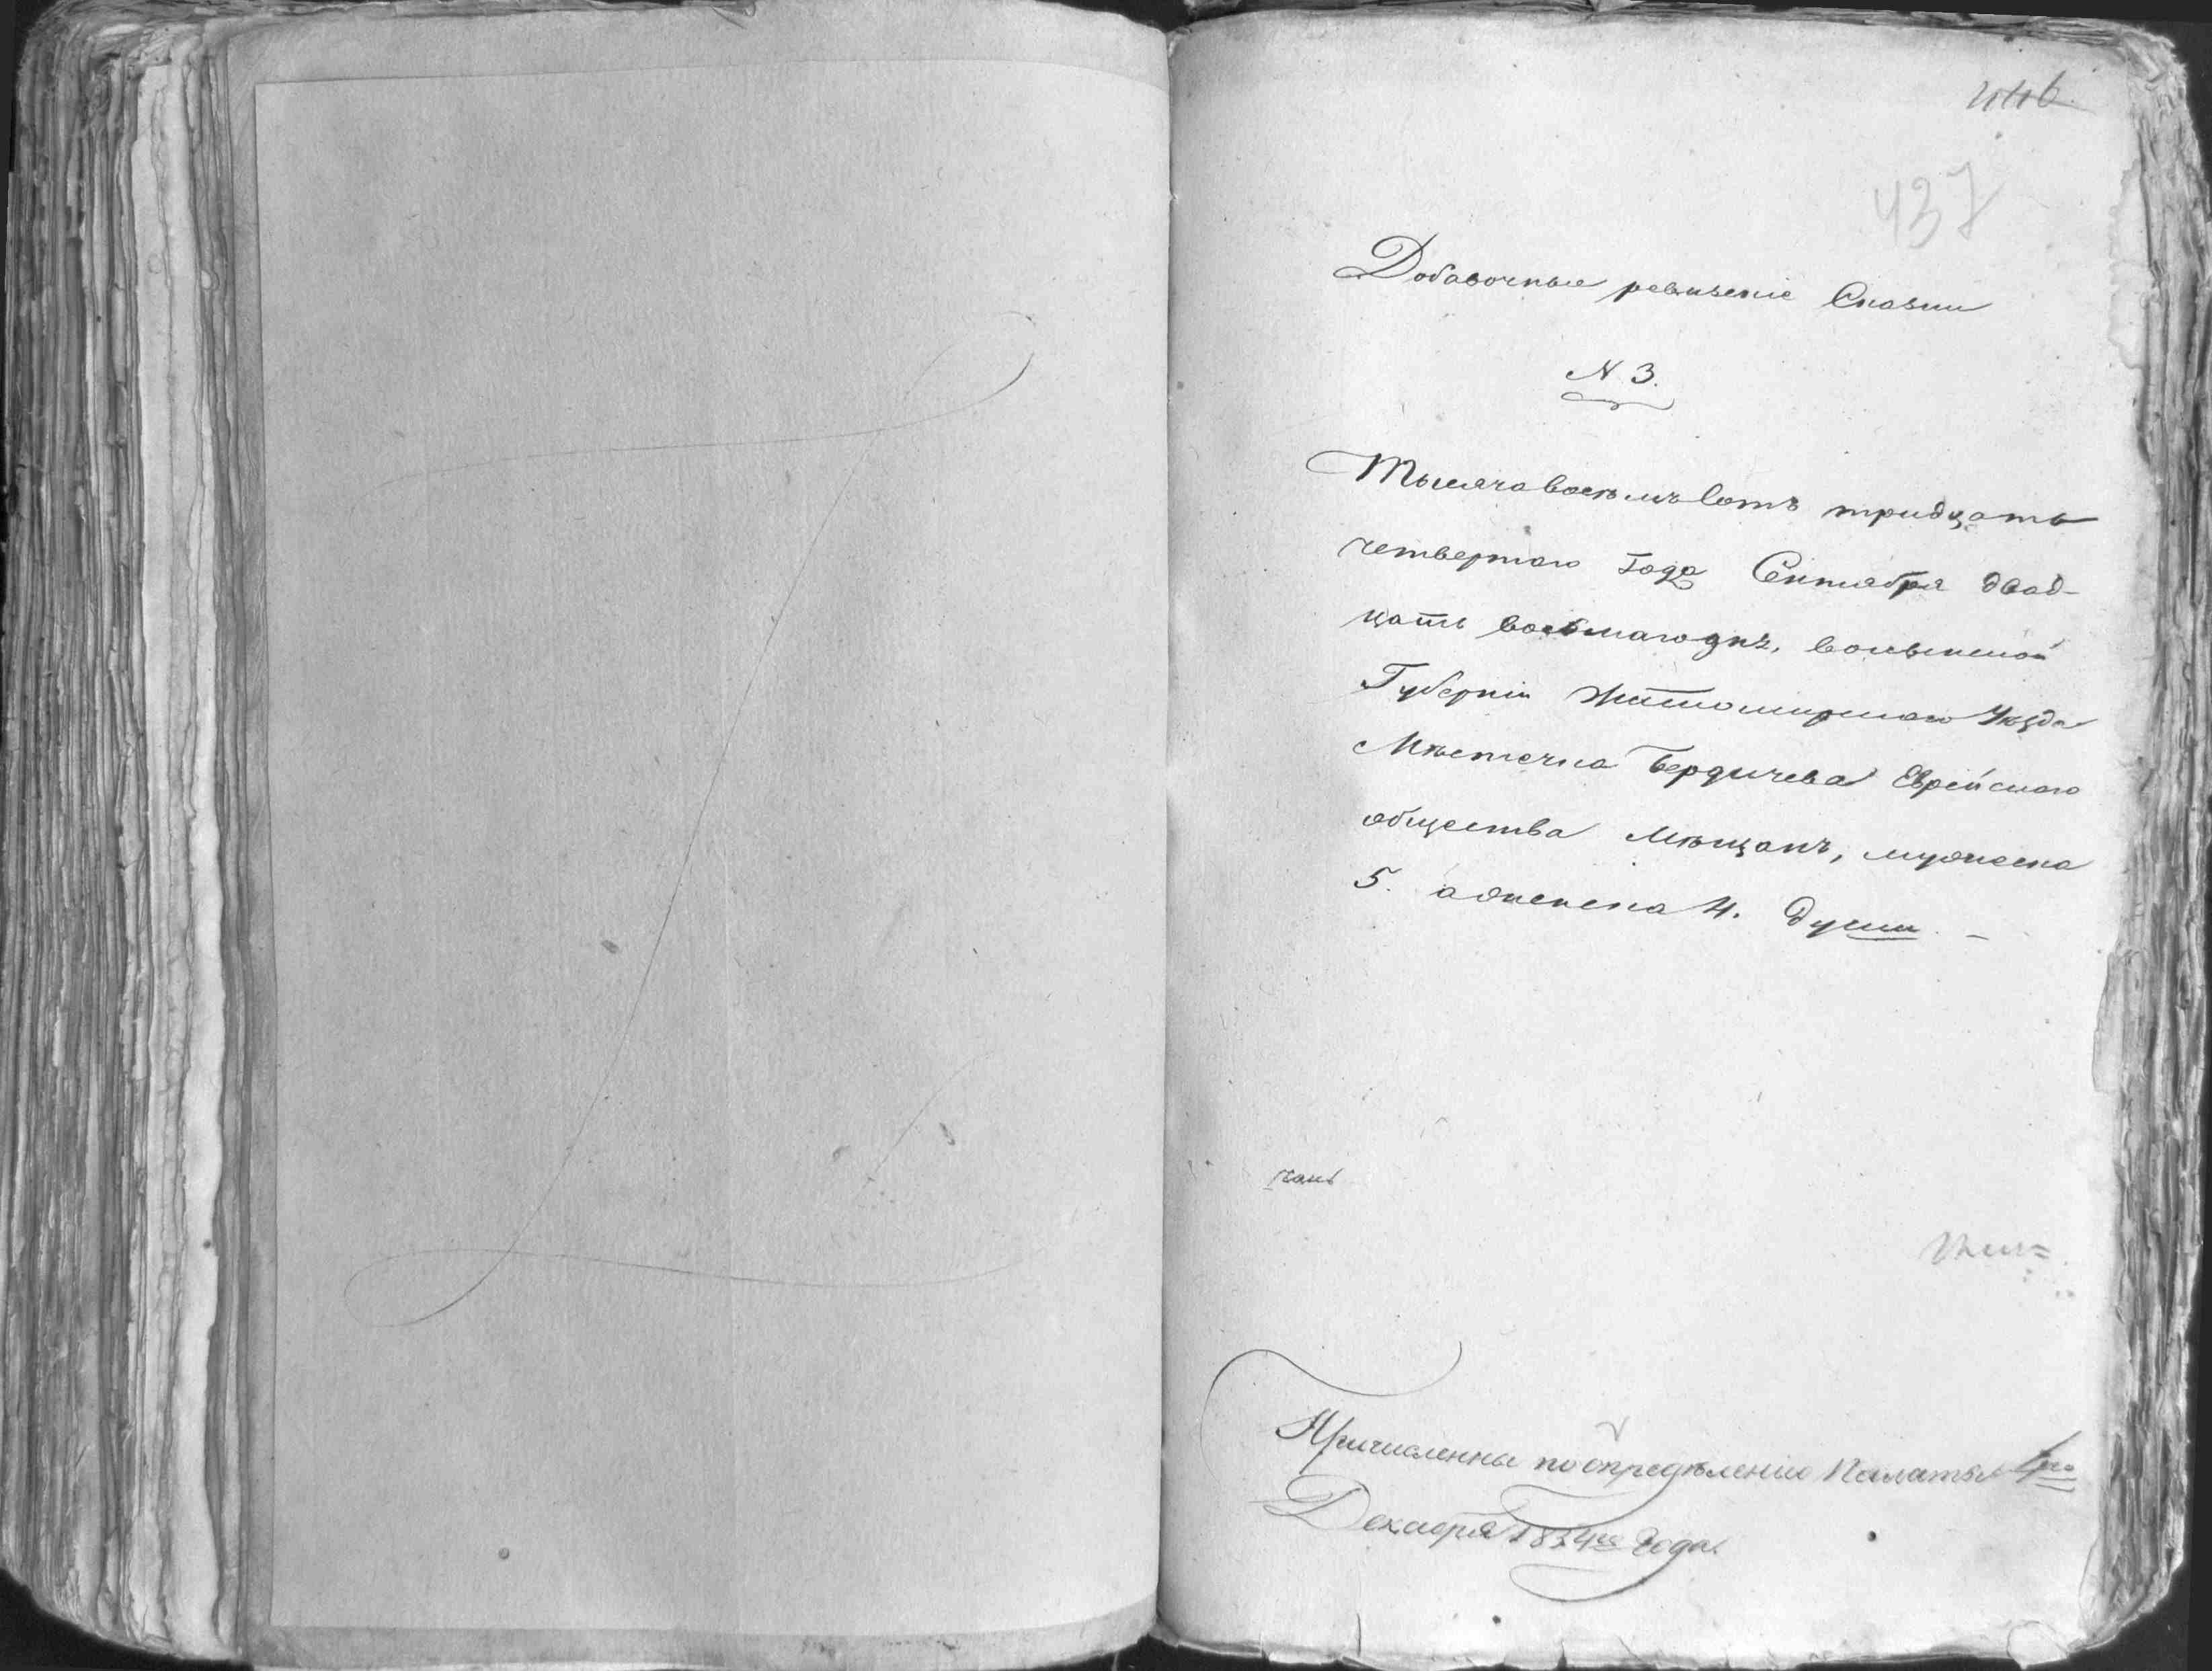 446
437
Добавочные ревизскіе Сказки
N 3.
Тысяча восемь Сотъ тридцать
четвертаго Года Сентября двад-
цать восьмаго дня, волынской
Губерніи Житомирскаго Уѣзда
Мѣстечка Бердичева Еврейскаго
общества мѣщанъ, мужеска
5. а женска 4. души. –
Причисленны по опредѣленію Палаты
Декабря 1834го Года.